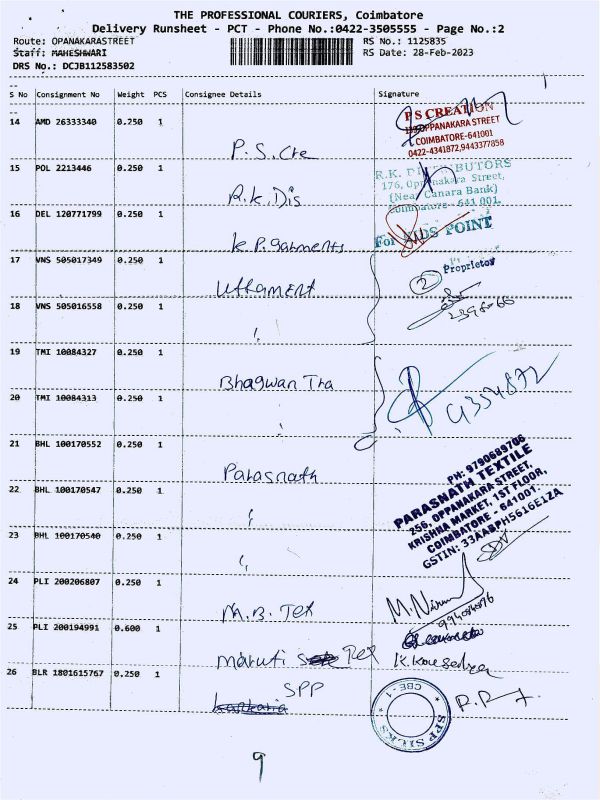 THE PROFESSIONAL COURIERS, Coimbatore
Delivery Runsheet - PCT - Phone No.:0422-3505555 - Page No.:2
Route: OPANAKARASTREET RS No.: 1125835
Staff: MAHESHWARI RS Date: 28-Feb-2023
DRS No.: DCJB112583502
S No Consignment No Weight PCS Consignee Details Signature
14 AMD 26333340 0.250 1 P.S.Cre
P S CREATION
OPPANAKARA STREET
COIMBATORE-641001
0422-4341872,9443377858
15 POL 2213446 0.250 1 R.K.Dis
R.K. DISTRIBUTORS
176, Oppanakara Street,
(Near Canara Bank)
Coimbatore - 641 001.
16 DEL 120771799 0.250 1 K P. Garments
For KIDS POINT
Proprietor
17 VNS 505017349 0.250 1
2
18 VNS 505016558 0.250 1 "
19 TMI 10084327 0.250 1 Bhagwan Tra
20 TMI 10084313 0.250 1 "
21 BHL 100170552 0.250 1 Parasnath
PH: 9790689706
PARASNATH TEXTILE
256, OPPANAKARA STREET,
KRISHNA MARKET, 1ST FLOOR,
COIMBATORE - 641001.
22 BHL 100170547 0.250 1 "
23 BHL 100170540 0.250 1 "
24 PLI 200206807 0.250 1 M.B. Tex
25 PLI 200194991 0.600 1 Maruti Tex
26 BLR 1801615767 0.250 1 SPP
SPP SILKS
* CBE - 1 *
9